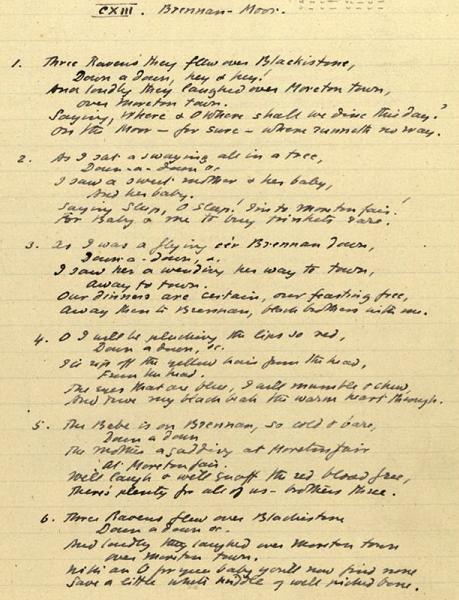 CXIII. Brennan-Moor.
1. Three Ravens they flew over Blackistone,
Down a down, hey & hey!
And loudly they laughed over Moreton town,
over Moreton town.
Saying, Where & O where shall we dine this day?
On the Moor - for sure - where runneth no way.
2. As I sat a swaying all in a tree,
Down-a-down &c
I saw a sweet mother & her baby,
And her baby.
Saying Sleep, O Sleep! I'm to Moreton fair!
For Baby & me to buy trinkets rare.
3. As I was a flying o'er Brennan Down,
Down-a-Down, &c.
I saw her a wending her way to town,
Away to town.
Our dinners are certain, our feasting free,
Away then to Brennan, black brothers with me.
4. O I will be plucking the lips so red,
Down a down, &c.
I'll rip off the yellow hair from the head,
From the head.
The eyes that are blue, I will mumble & chew,
And drive my black beak the warm heart through.
5. The Babe is on Brennan, so cold & bare,
Down a down
The mother a gadding at Moreton fair
At Moreton fair.
We'll laugh & we'll quaff the red blood free,
There's plenty for all of us - brothers three.
6. Three Ravens flew over Blackistone
Down a down &c.
And loudly they laughed over Moreton town
over Moreton town.
an O for your baby you'll now find none
Save a little white huddle of well picked bone.